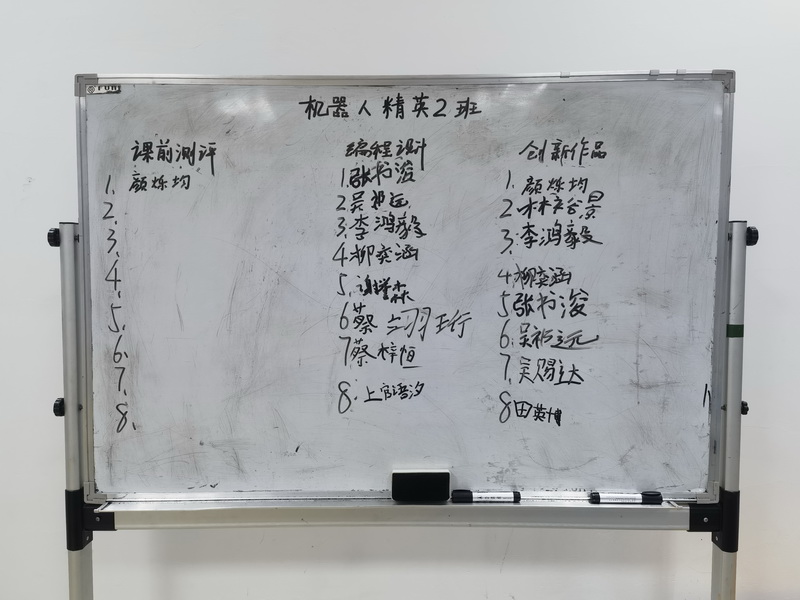 机器人精英2班
课前测评
1. 颜烁均
2.
3.
4.
5.
6.
7.
8.
编程设计
1. 张书浚
2 吴祁远
3. 李鸿毅
4 柳奕涵
5.
6 蔡 珩
7 蔡梓恒
8. 上官语汐
创新作品
1. 颜烁均
2 林 景
3. 李鸿毅
4 柳奕涵
5 张书浚
6. 吴祁远
7. 吴赐达
8 田英博